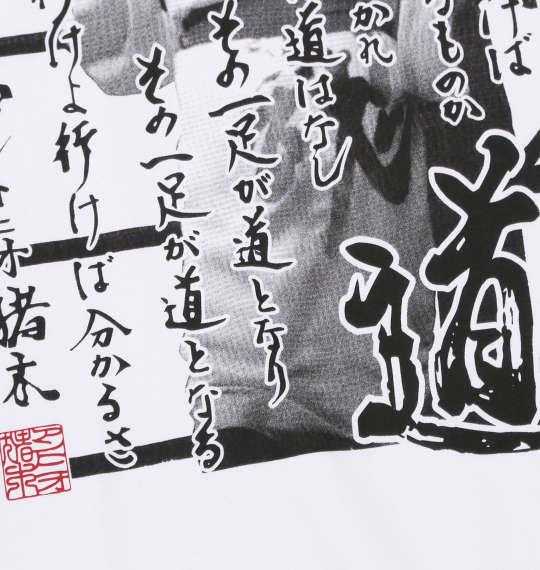 道
けば
ものか
かれ
道はなし
その一足が道となり
その一足が道となる
けよ行けば分かるさ
アントニオ猪木